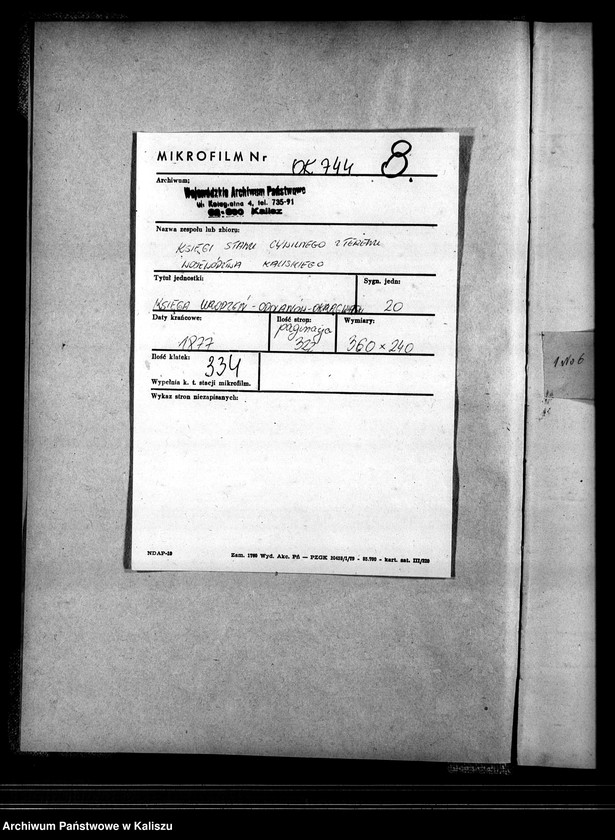 MIKROFILM Nr OK 744 8.
Archiwum:
Wojewódzkie Archiwum Państwowe
ul. Kolegialna 4, tel. 735-91
62-800 Kalisz
Nazwa zespołu lub zbioru:
KSIĘGI STANU CYWILNEGO Z TERENU
WOJEWÓDZTWA KALISKIEGO
Tytuł jednostki:
Sygn. jedn:
KSIĘGA URODZEŃ - ODOLANÓW -
20
Daty krańcowe:
Ilość stron:
Wymiary:
1877
paginacja
327
360 × 240
Ilość klatek:
334
Wypełnia k. t. stacji mikrofilm.
Wykaz stron niezapisanych:
NDAP-10
Zam. 1700 Wyd. Akc. Pń — PZGK
Archiwum Państwowe w Kaliszu